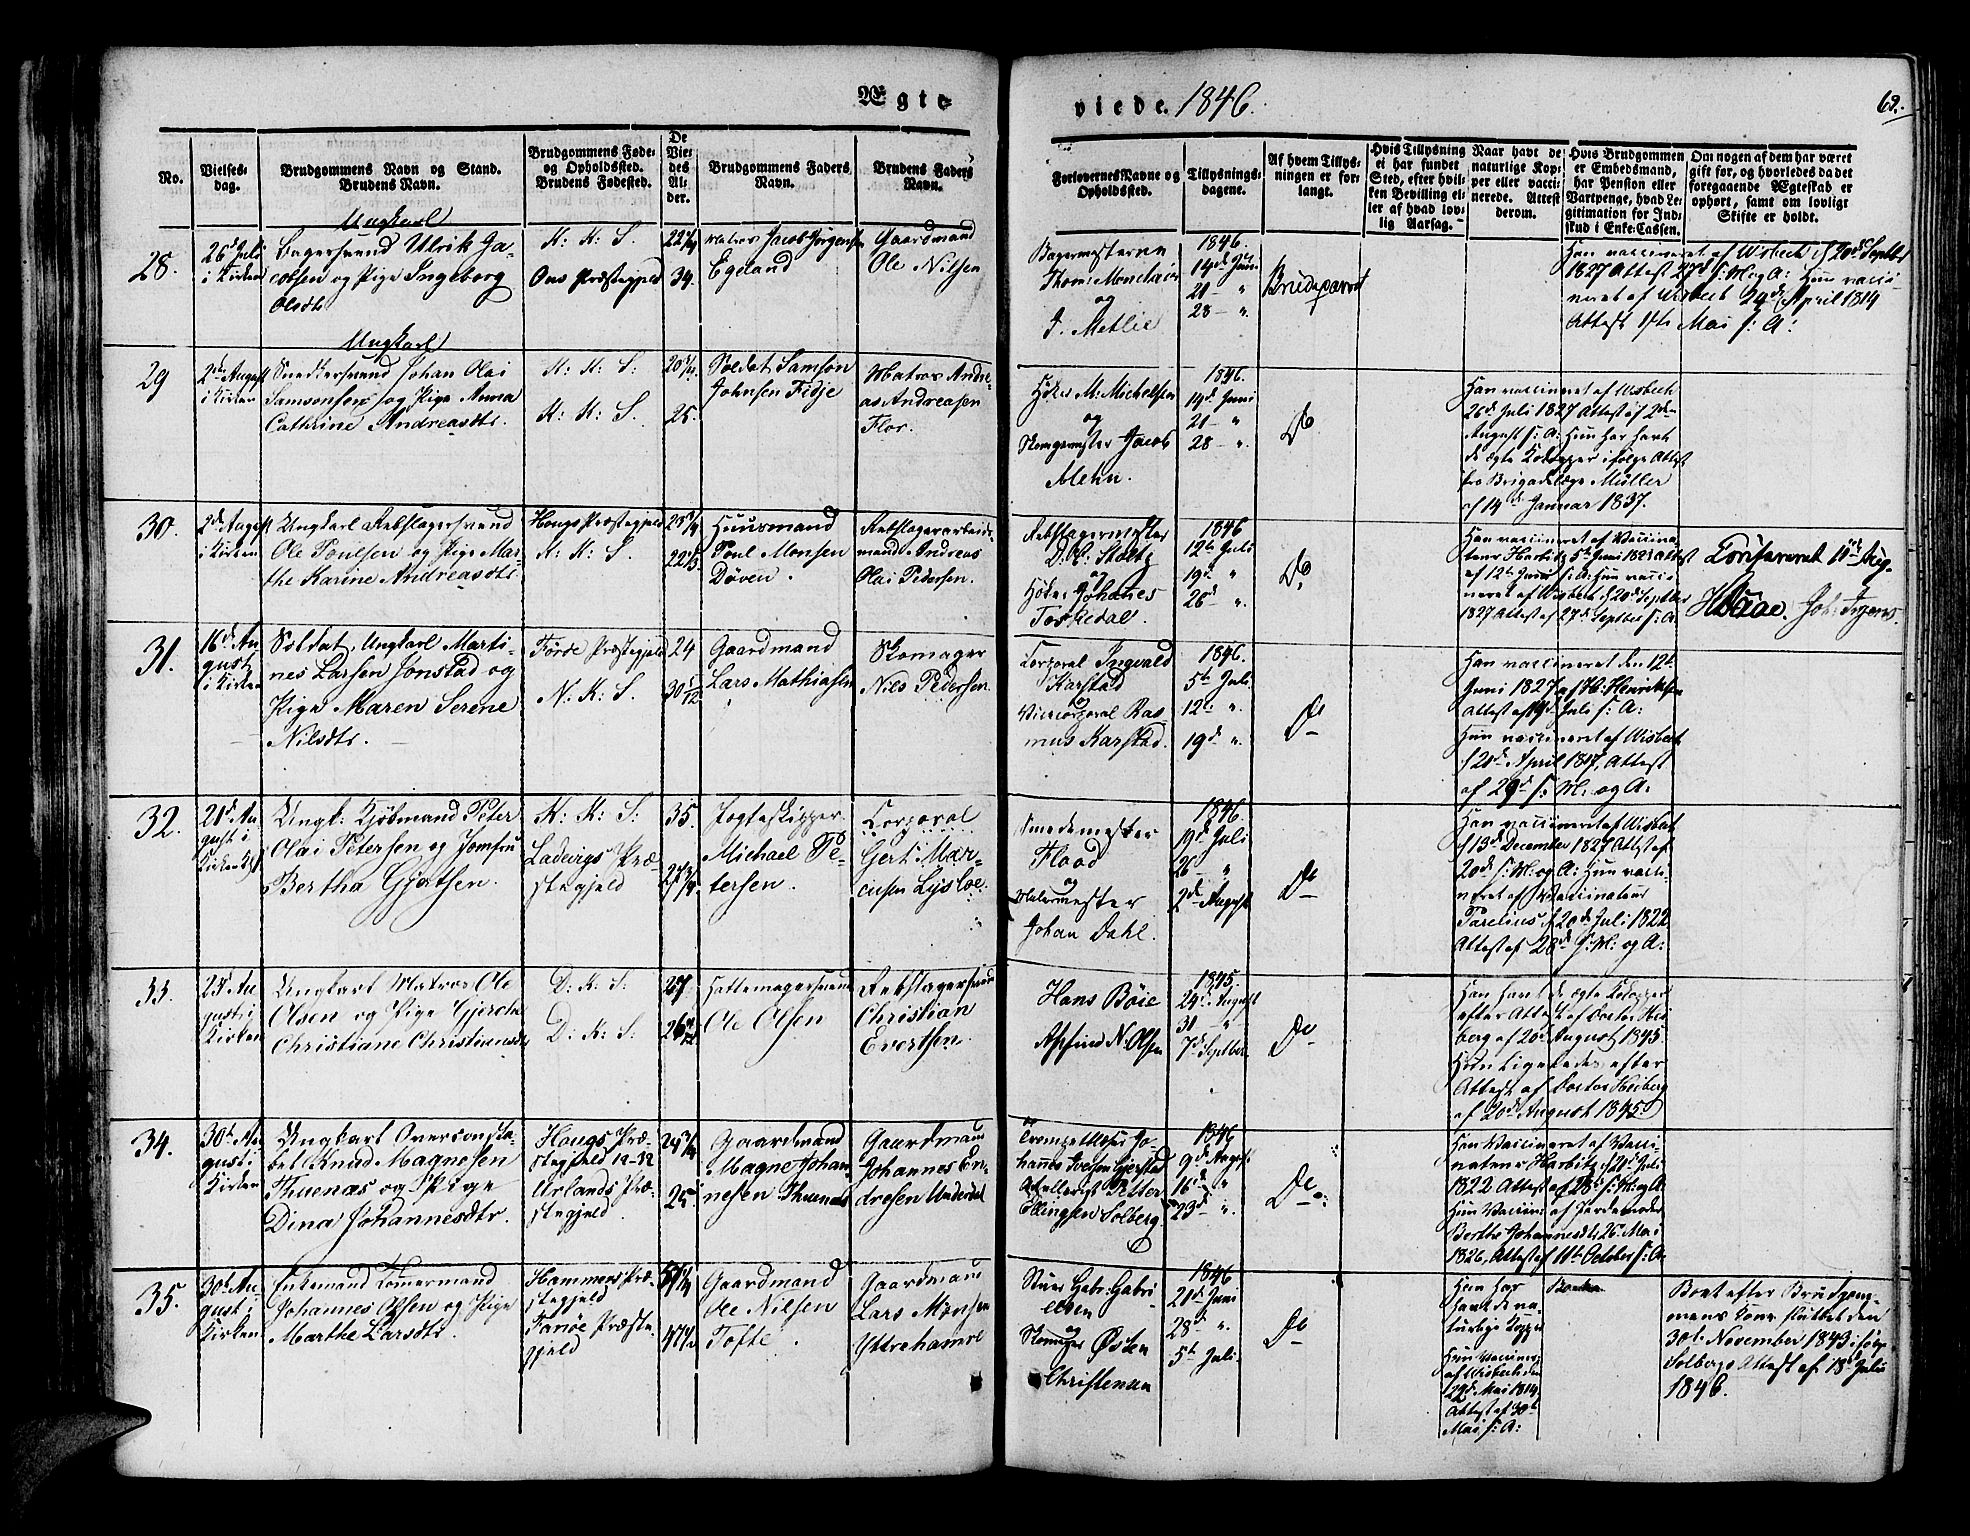 Ægte
No.
Vielses-
dag.
Brudgommens Navn og Stand.
Brudens Navn.
Brudgommens Føde-
og Opholdssted.
Brudens Fødested.
De
Vie-
des
Al-
der.
Brudgommens Faders
Navn.
Brudens Faders
Navn.
28.
26d Juli
i Kirken
Ungkarl
Bagersvend Ulrik Ja-
cobsen og Pige Ingeborg
Olsdtr
K: K: S.
Ous Præstegjeld
22¼
34.
Matros Jacob Jörgensen
Egeland
Gaardmand
Ole Nilsen
29
2den August
i Kirken
Ungkarl
Snedkersvend Johan Olai
Samsonsen og Pige Anna
Cathrine Andreasdtr.
K: K: S.
K: K: S.
25.
Soldat Samson
Johnsen Fidje
Matros Andre-
as Andreasen
Flor.
30.
2d August
i Kirken
Ungkarl Rebslagersvend
Ole Poulsen og Pige Mar-
the Karine Andreasdtr
Hougs Præstegjeld
K: K: S.
Huusmand
Poul Monsen
Döven.
Rebslagerarbeids-
mand Andreas
Olai Pedersen.
31.
16d Au-
gust
i Kirken
Soldat, Ungkarl Marti-
nes Larsen Jonstad og
Pige Maren Serene
Nilsdtr.
Förde Præstegjeld
N: K: S.
24
30
Gaardmand
Lars Mathiasen
Skomager
Nils Pedersen.
32.
21d Au-
gust i
Kirken
Ungk: Kjöbmand Peter
Olai Petersen og Jomfru
Bertha Gjertsen.
K: K: S.
Ladevigs Præ-
stegjeld
35.
Jagteskipper
Michael Pe-
tersen.
Corporal
Gert Mar-
cusen Lysloe.
33.
23d Au-
gust i
Kirken
Ungkarl Matros Ole
Olsen og Pige Gjerche
Christiane Christiansdtr
D: K: S.
D: K: S.
27
26
Hattemagersvend
Ole Olsen
Rebslagersvend
Christian
Evertsen
34.
30te Au-
gust i
Kirken
Ungkarl
Knud Magnesen
Thuenæs og Pige
Dina Johannesdtr.
Hougs Præ-
stegjeld
Urlands Præ-
stegjeld
25
Gaardmand
Magne Johan-
nesen Thuenæs
Gaardmand
Johannes En-
dresen Underdal
35.
30te Au-
gust i
Kirken
Enkemand Tömermand
Johannes Olsen og Pige
Marthe Larsdtr.
Hammers Præ-
stegjeld
Fanöe Præste-
gjeld
Gaardmand
Ole Nilsen
Tofte.
Gaardmand
Lars Monsen
Yttrehamre
viede. 1846.
62.
Forlovernes Navne og
Opholdssted.
Tillysnings-
dagene.
Af hvem Tillys-
ningen er for-
langt.
Hvis Tillysning
ei har fundet
Sted, efter hvil-
ken Bevilling el-
ler af hvad lov-
lig Aarsag.
Naar havt de
naturlige Kop-
per eller vacci-
nerede. Attest
derom.
Hvis Brudgommen
er Embedsmand,
har Pension eller
Vartpenge, hvad Le-
gitimation for Ind-
skud i Enke-Cassen.
Om nogen af dem har været
gift før, og hvorledes da det
foregaaende Ægteskab er
ophørt, samt om lovligt
Skifte er holdt.
Bagermesterne
Thom: Monclair
og
J. Metlie
1846.
14d Juni
21 — "
28 — "
Brudeparret
Han vaccineret af Wisbech d 20de Septbr
1827 Attest 27d s: M: og A: Hun vacci-
neret af Wisbech 24d April 1814
Attest 1ste Mai s: A:
Höker M: Michelsen
og
Skomagermester Jacob
Mehn.
1846.
14d Juni
21 — "
28 — "
Do
Han vaccineret af Wisbech
26d Juli 1827 Attest af 2den
August s: A: Hun har havt
de ægte Kokopper ifölge Attest
fra Brigadelæge Müller
af 14de Januar 1837.
Rebslagermester
D: C: Stoltz
og
Höker Johanes
Torkedal.
1846
12te Juli
19d "
26d — "
Do
Han vaccineret af Vaccina-
teur Harbitz 5te Juni 1823 Attest
af 12te Juni s: A: Hun vacci-
neret af Wisbech d 20d Septbr
1827 Attest af 27d Septbr s: A:
Corporal Ingvald
Karstad
og
Vicecorporal Ras-
mus Karstad.
1846.
5te Juli
12te "
19d "
Do
Han vaccineret den 12te
Juni 1827 af H: Henriksen
Attest af 19d Juli s: A:
Hun vaccineret af Wisbech
d 21d April 1817, Attest
af 29d s: M: og A:
Smedemester
Flood
og
Malermester
Johan Dahl.
1846.
19d Juli
26 — "
2d August
Do
Han vaccineret af Wisbech
d 13d December 1827 Attest af
20d s: M: og A: Hun vacci-
neret af Vaccinateur
Parelius d 20d Juli 1822
Attest af 28d s: M: og A:
Hans Böie
N: Olsen
1845.
24d August
31 — "
7d Septber
Do
Han havt de ægte Kokopper
efter Attest af Doctor Hei-
berg af 20d August 1845.
Hun ligeledes efter
Attest af Doctor Heiberg
af 20d August 1845.
Johannes Iversen Gjerstad
Petter
Ellingsen Solberg
1846
9d August
16d "
23d — "
Do
Han Vaccineret af Vacci-
nateur Harbitz d 20d Juli
1822 Attest af 28d s: M: og A:
Hun Vaccin: af Jordemoder
Berthe Johannesdtr 26 Mai
1826, Attest af 11te October s: A:
Gabr: Gabri-
elsen
og
Skomager Østen
Christensen
1846
21d Juni
28d — "
5te Juli
Do
Han har
havt de na-
turlige Kopper
Hun Vaccineret
af Wisbech den
22d Mai 1814,
Attest af 30te
Mai s: A:
Bort efter Brudgom-
mens Kone sluttet den
30te November 1843 ifölge
Solbergs Attest af 18d Juli
1846.